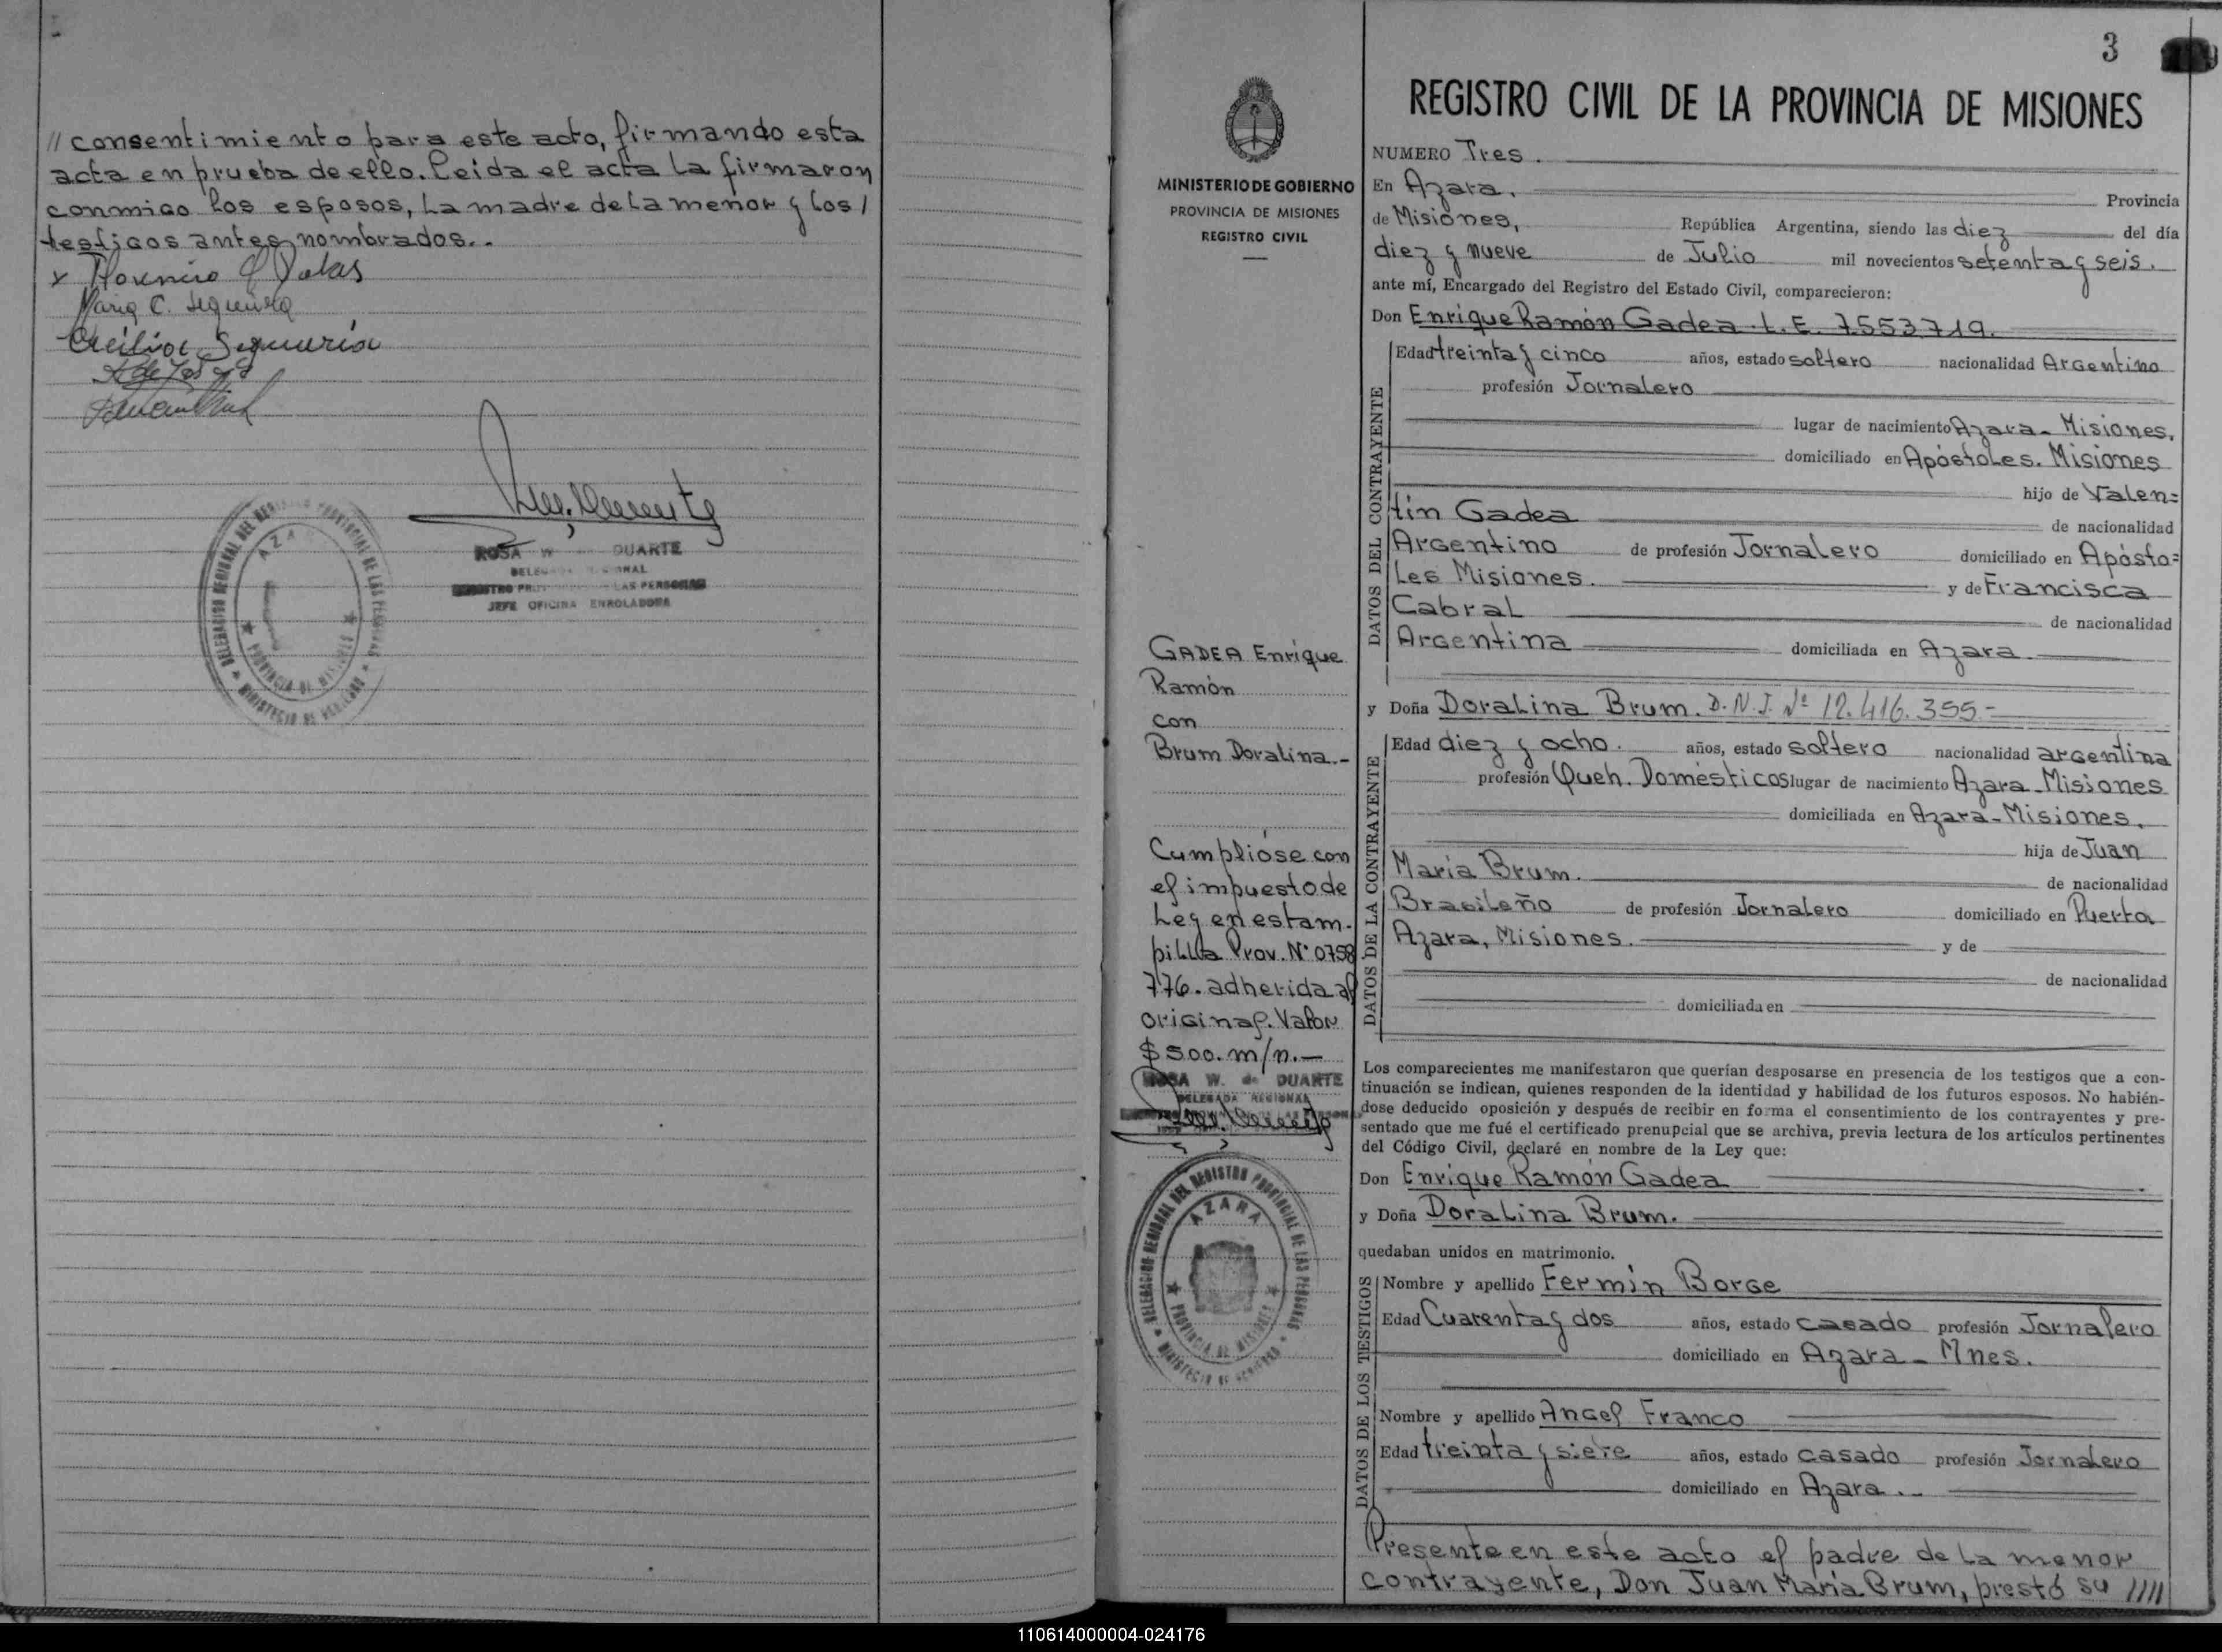 // consentimiento para este acto, firmando esta
acta en prueba de ello. Leida el acta la firmaron
conmigo los esposos, la madre de la menor y los /
testigos antes nombrados..
Maria C. Sequeira
Cecilia Sequeira
ROSA W. de DUARTE
DELEGADA REGIONAL
REGISTRO PROV. DE LAS PERSONAS
JEFE OFICINA ENROLADORA
DELEGACION REGIONAL DEL REGISTRO PROVINCIAL DE LAS PERSONAS
AZARA
PROVINCIA DE MISIONES
MINISTERIO DE GOBIERNO
3
MINISTERIO DE GOBIERNO
PROVINCIA DE MISIONES
REGISTRO CIVIL
GADEA Enrique
Ramón
con
Brum Doralina.-
Cumplióse con
el impuesto de
Ley en estam-
pilla Prov. N° 0758
776. adherida al
original. Valor
$ 500. m/n.—
ROSA W. de DUARTE
DELEGADA REGIONAL
DELEGACION REGIONAL DEL REGISTRO PROVINCIAL DE LAS PERSONAS
AZARA
PROVINCIA DE MISIONES
MINISTERIO DE GOBIERNO
REGISTRO CIVIL DE LA PROVINCIA DE MISIONES
NUMERO Tres.
En Azara, Provincia
de Misiones, República Argentina, siendo las diez del día
diez y nueve de Julio mil novecientos setenta y seis.
ante mí, Encargado del Registro del Estado Civil, comparecieron:
Don Enrique Ramón Gadea. L.E. 7553719.
DATOS DEL CONTRAYENTE
Edad treinta y cinco años, estado soltero nacionalidad Argentino
profesión Jornalero
lugar de nacimiento Azara- Misiones,
domiciliado en Apóstoles. Misiones
hijo de Valen=
tín Gadea de nacionalidad
Argentino de profesión Jornalero domiciliado en Apósto=
les Misiones. y de Francisca
Cabral de nacionalidad
Argentina domiciliada en Azara.
y Doña Doralina Brum. D.N.I. Nº 12.416.355-
DATOS DE LA CONTRAYENTE
Edad diez y ocho. años, estado soltero nacionalidad argentina
profesión Queh. Domésticos lugar de nacimiento Azara-Misiones
domiciliada en Azara-Misiones,
hija de Juan
María Brum. de nacionalidad
Brasileño de profesión Jornalero domiciliado en Puerto
Azara, Misiones. y de
de nacionalidad
domiciliada en
Los comparecientes me manifestaron que querían desposarse en presencia de los testigos que a con-
tinuación se indican, quienes responden de la identidad y habilidad de los futuros esposos. No habién-
dose deducido oposición y después de recibir en forma el consentimiento de los contrayentes y pre-
sentado que me fué el certificado prenupcial que se archiva, previa lectura de los artículos pertinentes
del Código Civil, declaré en nombre de la Ley que:
Don Enrique Ramón Gadea
y Doña Doralina Brum.
quedaban unidos en matrimonio.
DATOS DE LOS TESTIGOS
Nombre y apellido Fermin Borge
Edad Cuarenta y dos años, estado casado profesión Jornalero
domiciliado en Azara - Mnes.
Nombre y apellido Angel Franco
Edad treinta y siete años, estado casado profesión Jornalero
domiciliado en Azara..-
Presente en este acto el padre de la menor
contrayente, Don Juan María Brum, prestó su ////
110614000004-024176